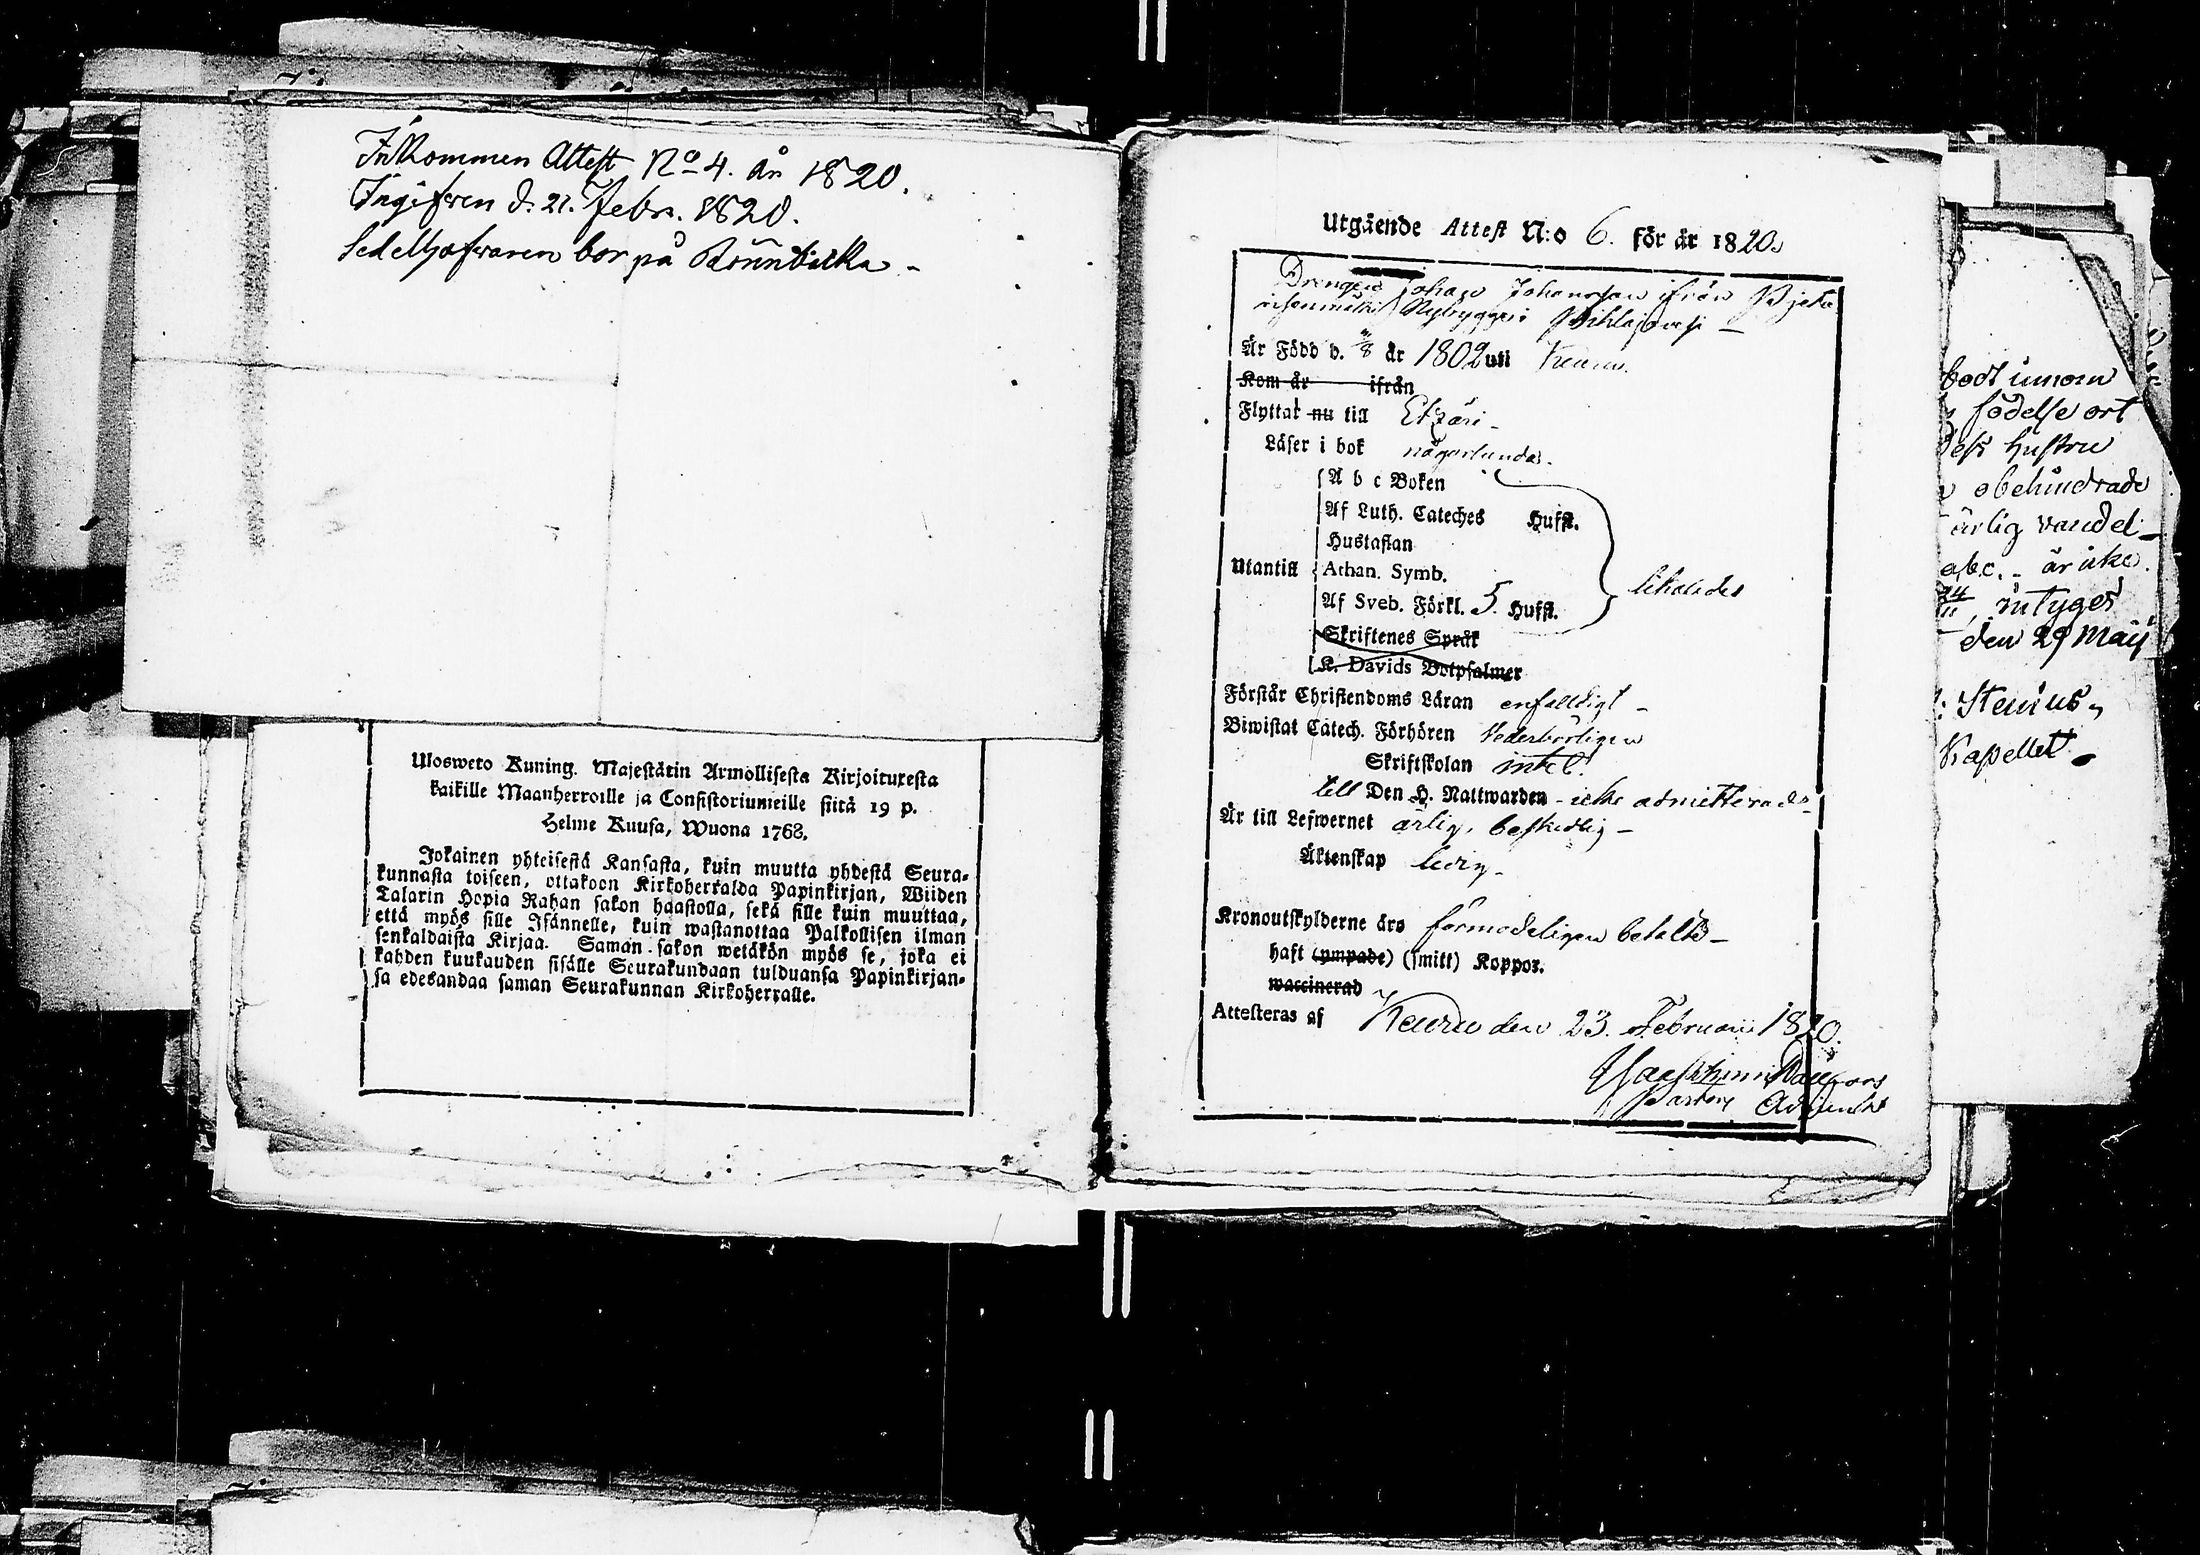 Inkommen Attest No 4. år 1820.
Ingifven d. 21. Febr. 1820.
Sedelhafvaren bor på Rönnbacka -
Ulosweto Kuning. Majestätin Armollisesta Kirjoituxesta
kaikille Maanherroille ja Consistoriumeille siitä 19 p.
Helme Kuusa, Wuona 1768.
Jokainen yhteisestä Kansasta, kuin muutta yhdestä Seura-
kunnasta toiseen, ottakoon Kirkoherralda Papinkirjan, Wiiden
Talarin Hopia Rahan sakon haastolla, sekä sille kuin muuttaa,
että myös sille Isännelle, kuin wastanottaa Palkollisen ilman
senkaldaista Kirjaa. Saman sakon wetäkön myös se, joka ei
kahden kuukauden sisälle Seurakundaan tulduansa Papinkirjan-
sa edesandaa saman Seurakunnan Kirkoherralle.
Utgående Attest N:o 6. för år 1820.
Drengen Johan Johansson ifrån
Nybygget
Är Född d. /8 år 1802 uti Keuru.
Kom år ifrån
Flyttat nu till Etzäri -
Läser i bok någorlunda.
A b c Boken
Af Luth. Cateches Hufst.
Hustaflan
Utantill Athan. Symb. likaledes
Af Sveb. Förkl. 5 Hufst.
Skriftenes Språk
K. Davids Botpsalmer
Förstår Christendoms Läran enfaldigt -
Biwistat Catech. Förhören vederbörligen
Skriftskolan intet.
till Den H. Nattwarden - icke admitterad
Är till Lefwernet ärlig, beskedlig -
Äktenskap ledig -
Kronoutskylderne äro förmodeligen betalte -
haft (ympade) (smitt) Koppor.
waccinerad
Attesteras af Keuru den 23. Februarii 1820.
Pastors Adjunct
bodt innom
födelse ort
dess hustru
obehindrade
ärlig vandel -
a.b.c. - är icke
24/11, intygas
den 29 Maij
: Stenius,
Kapellet -